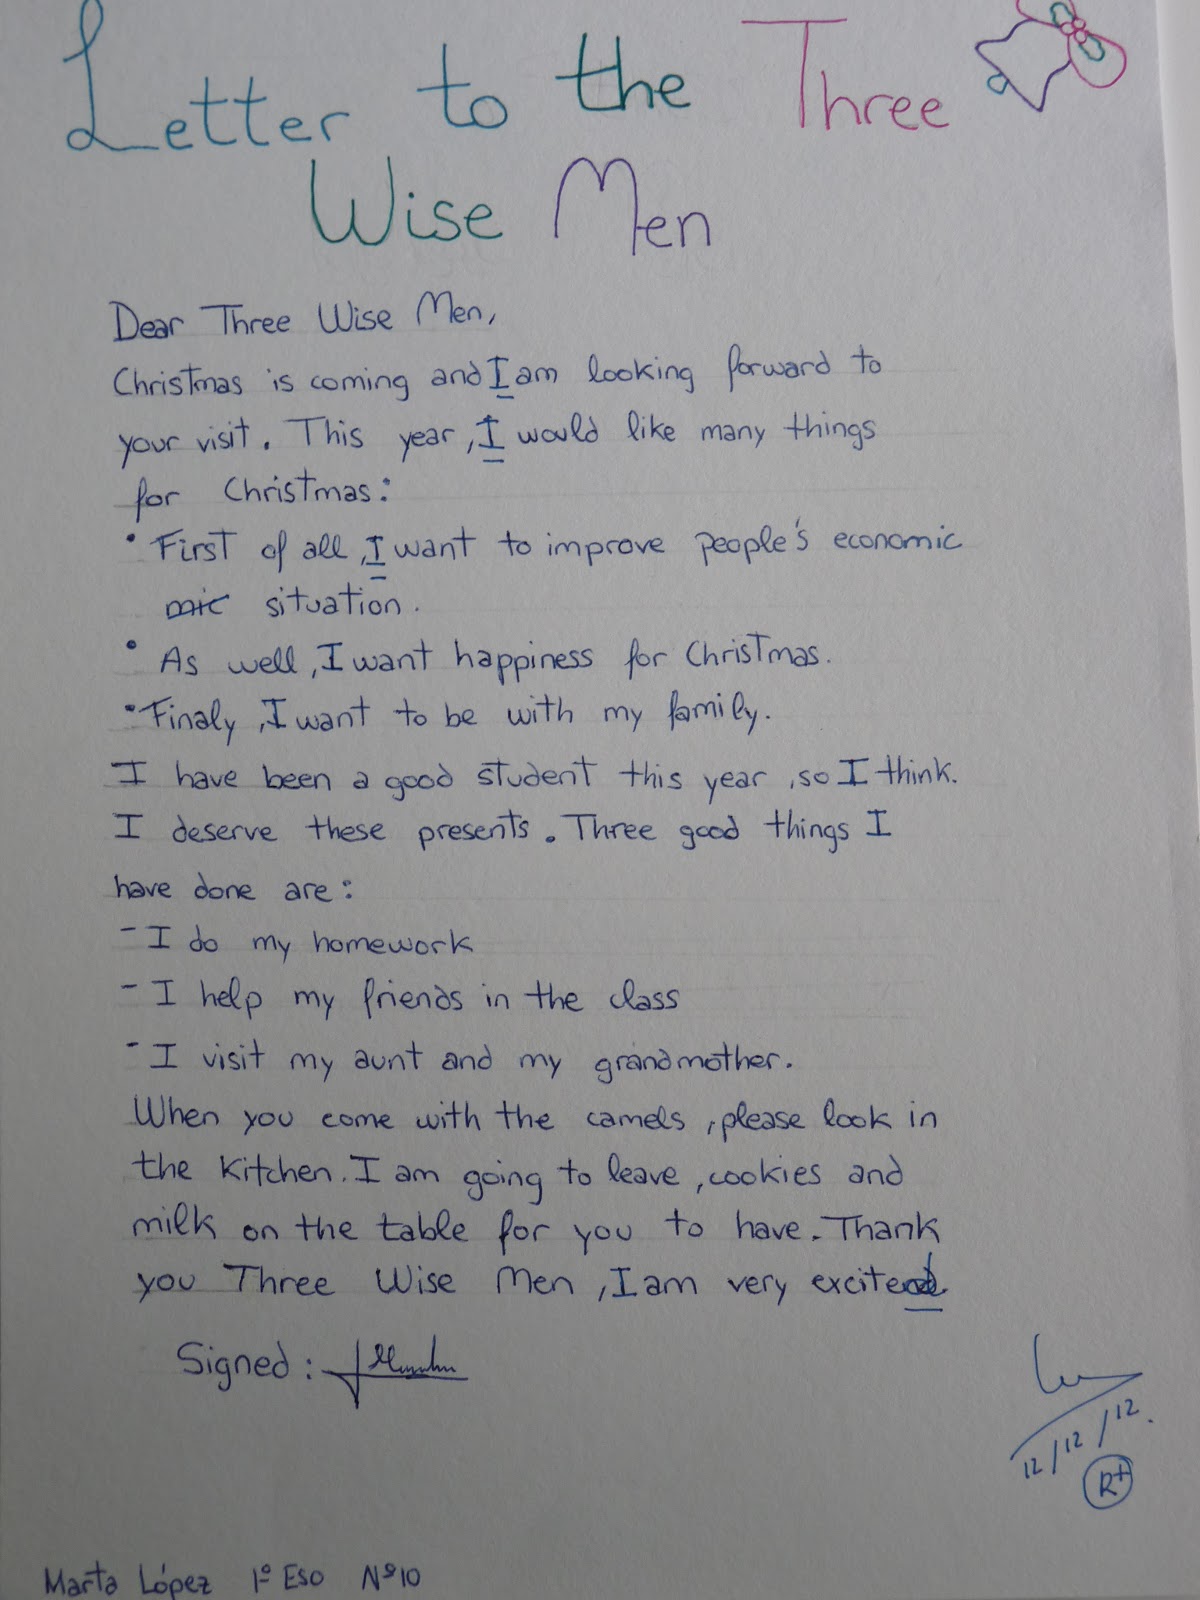 Letter to the Three
Wise Men
Dear Three Wise Men,
Christmas is coming and I am looking forward to
your visit. This year, I would like many things
for Christmas:
• First of all, I want to improve people's economic
mic situation.
• As well, I want happiness for Christmas.
• Finaly, I want to be with my family.
I have been a good student this year, so I think.
I deserve these presents. Three good things I
have done are:
- I do my homework
- I help my friends in the class
- I visit my aunt and my grandmother.
When you come with the camels, please look in
the kitchen. I am going to leave, cookies and
milk on the table for you to have. Thank
you Three Wise Men, I am very excited
Signed:
12/12/12.
R+
Marta López 1º ESO Nº10